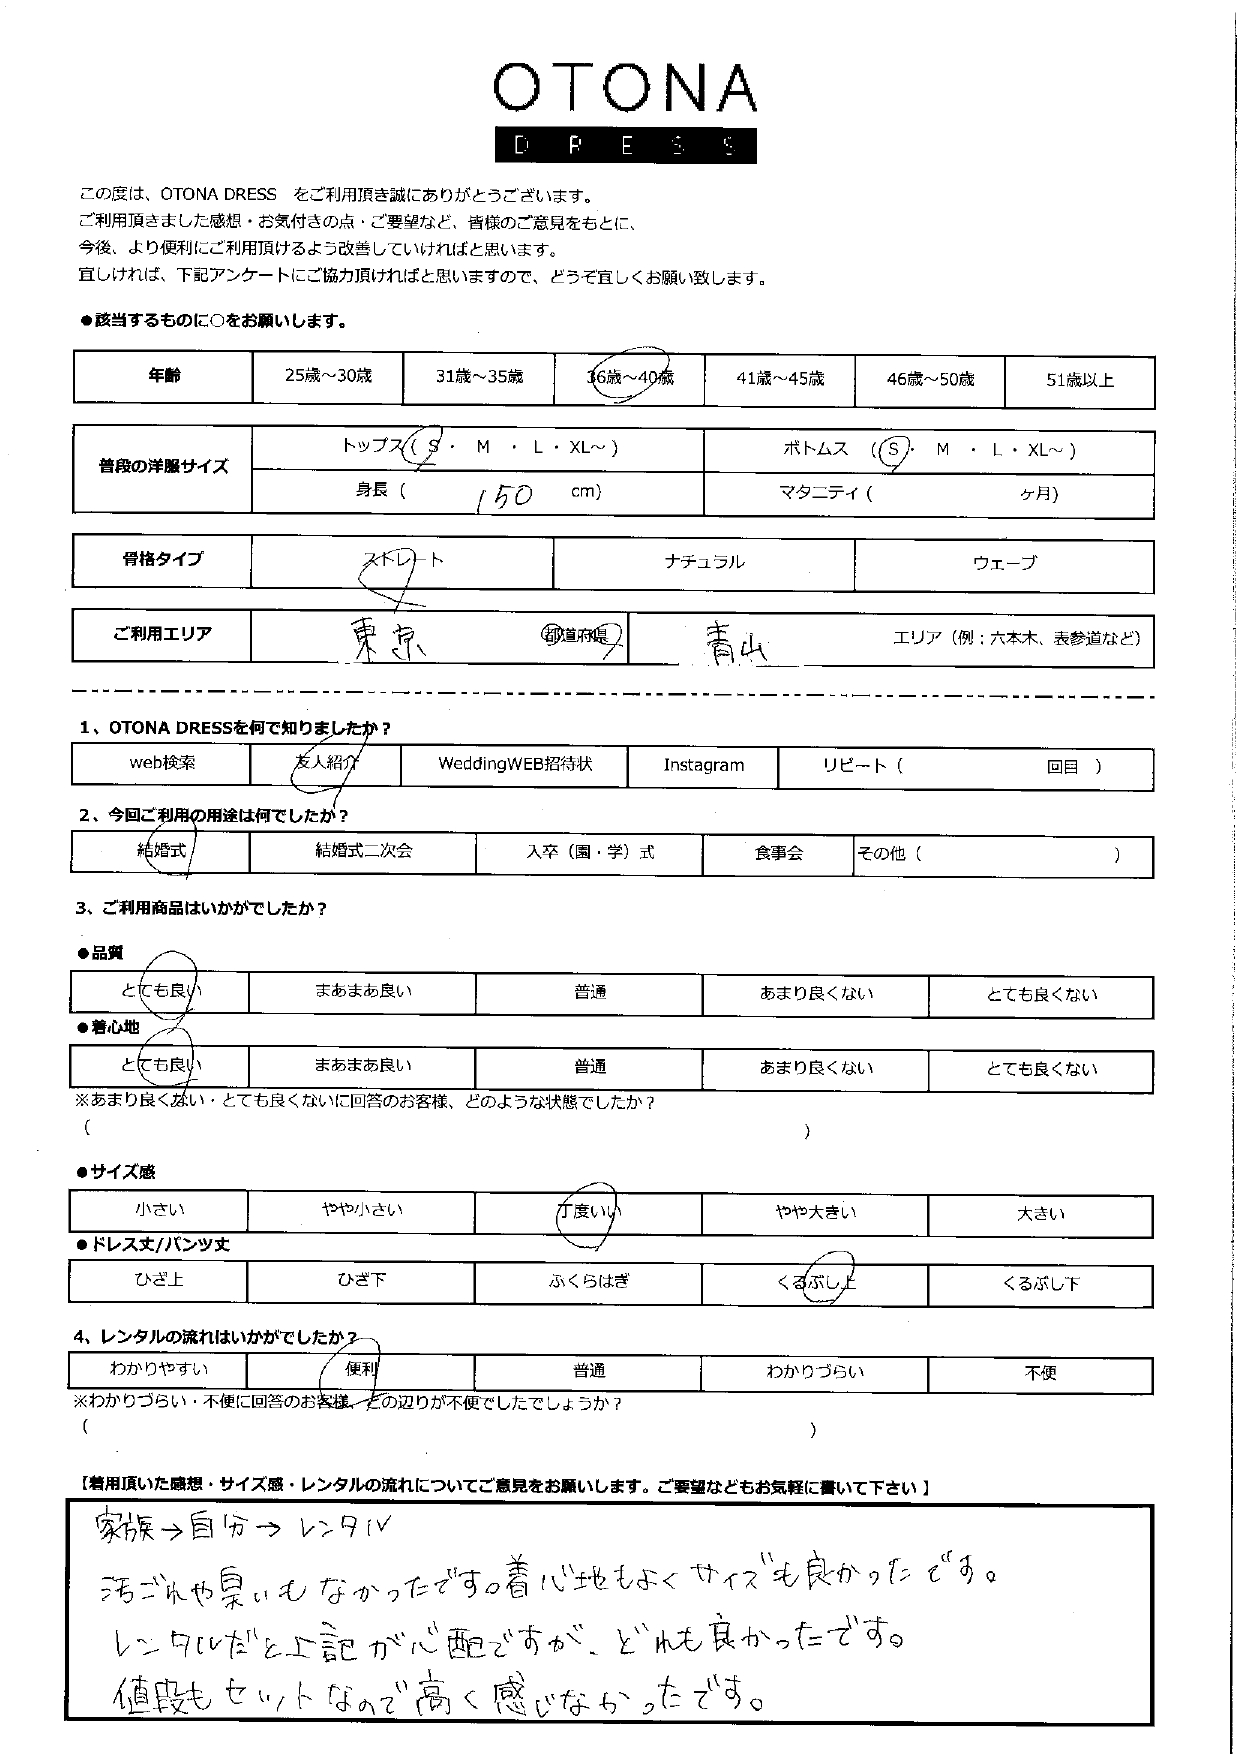 OTONA
DRESS
この度は、OTONA DRESS　をご利用頂き誠にありがとうございます。
ご利用頂きました感想・お気付きの点・ご要望など、皆様のご意見をもとに、
今後、より便利にご利用頂けるよう改善していければと思います。
宜しければ、下記アンケートにご協力頂ければと思いますので、どうぞ宜しくお願い致します。
●該当するものに○をお願いします。
年齢 25歳～30歳 31歳～35歳 36歳～40歳 41歳～45歳 46歳～50歳 51歳以上
普段の洋服サイズ トップス( S・ M ・ L・XL～) ボトムス (S・ M ・ L・XL～)
身長 ( 150 cm) マタニティ( ヶ月)
骨格タイプ ストレート ナチュラル ウェーブ
ご利用エリア 東京 都道府県 青山 エリア（例：六本木、表参道など）
1、OTONA DRESSを何で知りましたか？
web検索 友人紹介 WeddingWEB招待状 Instagram リピート（ 回目 ）
2、今回ご利用の用途は何でしたか？
結婚式 結婚式二次会 入卒（園・学）式 食事会 その他（ ）
3、ご利用商品はいかがでしたか？
●品質
とても良い まあまあ良い 普通 あまり良くない とても良くない
●着心地
とても良い まあまあ良い 普通 あまり良くない とても良くない
※あまり良くない・とても良くないに回答のお客様、どのような状態でしたか？
( )
●サイズ感
小さい やや小さい 丁度いい やや大きい 大きい
●ドレス丈/パンツ丈
ひざ上 ひざ下 ふくらはぎ くるぶし上 くるぶし下
4、レンタルの流れはいかがでしたか？
わかりやすい 便利 普通 わかりづらい 不便
※わかりづらい・不便に回答のお客様、どの辺りが不便でしたでしょうか？
( )
【着用頂いた感想・サイズ感・レンタルの流れについてご意見をお願いします。ご要望などもお気軽に書いて下さい】
家族→自分→レンタル
汚ごれや臭いもなかったです。着心地もよくサイズも良かったです。
レンタルだと上記が心配ですが、どれも良かったです。
値段もセットなので高く感じなかったです。